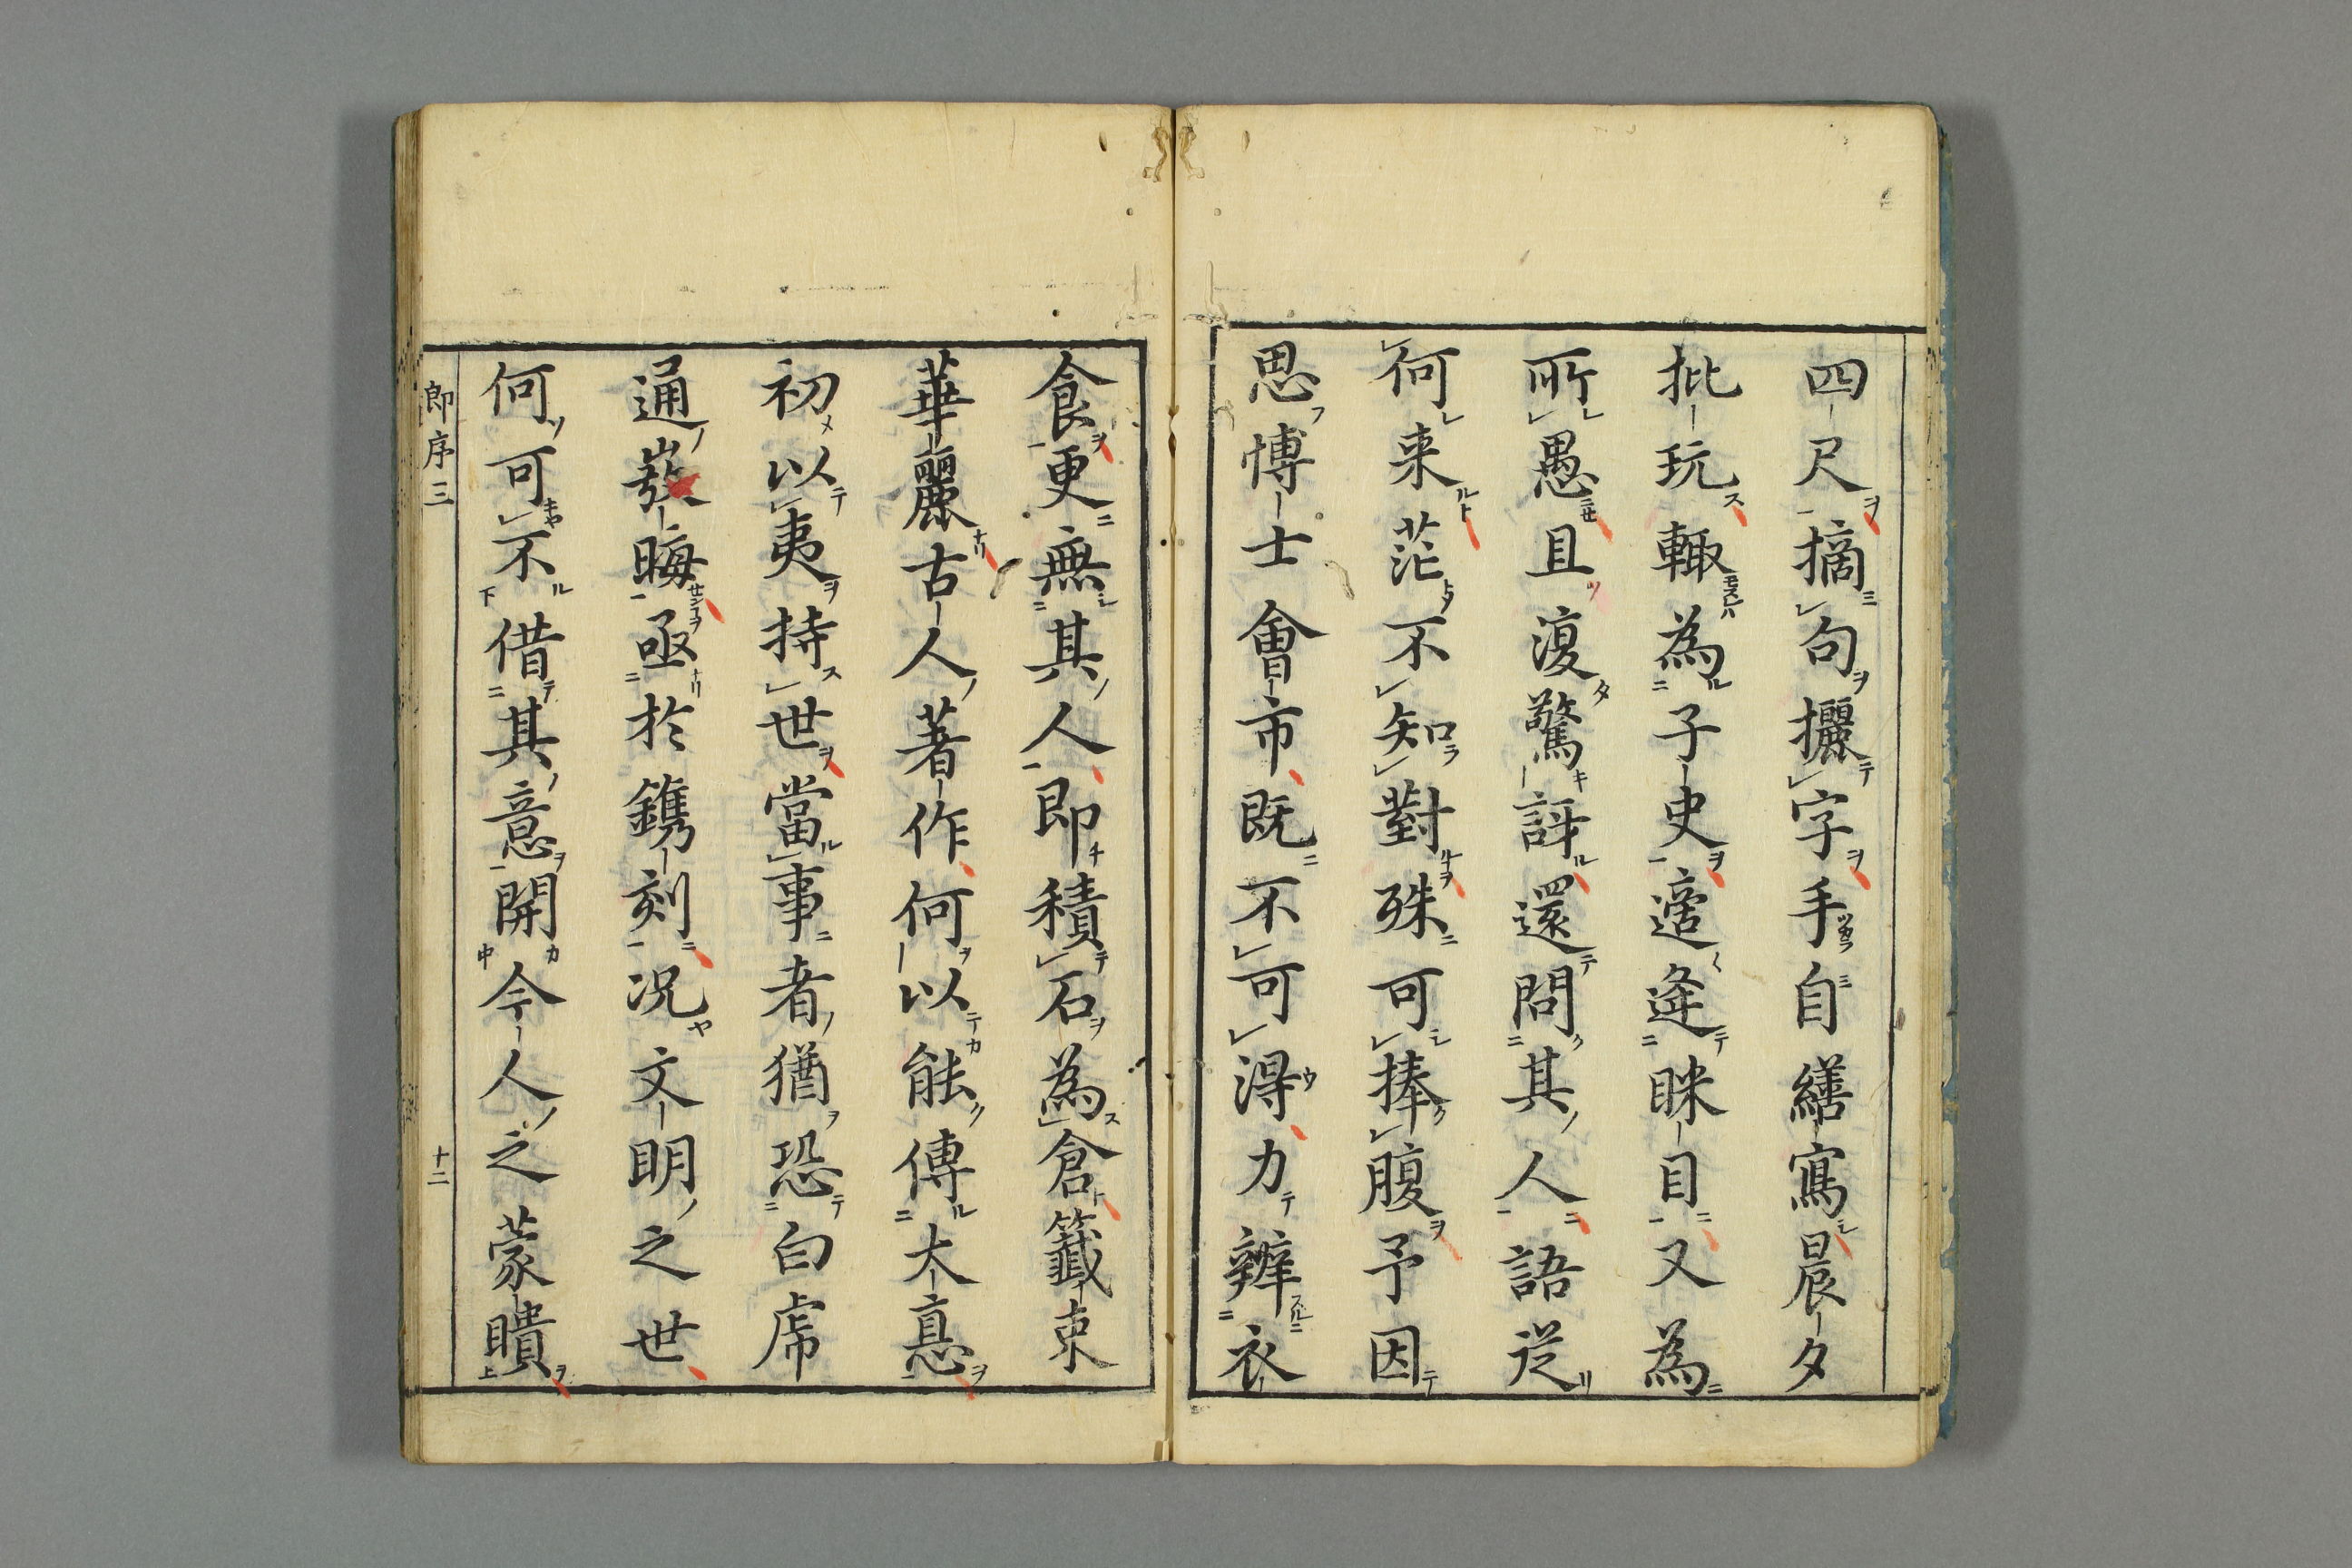 四尺摘句攦字手自繕寫晨夕
批玩輙為子史遊逢眯目又為
所愚且復驚訝還問其人語従
何来茫不知對殊可捧腹予因
思博士會市既不可得力辨衣
食更無其人即積石為倉籤束
華麗古人著作何以能傳太息
初以夷持世當事者猶恐白虎
通發晦亟於鐫刻况文明之世
何可不借其意開今人之蒙瞶
即序三
十二